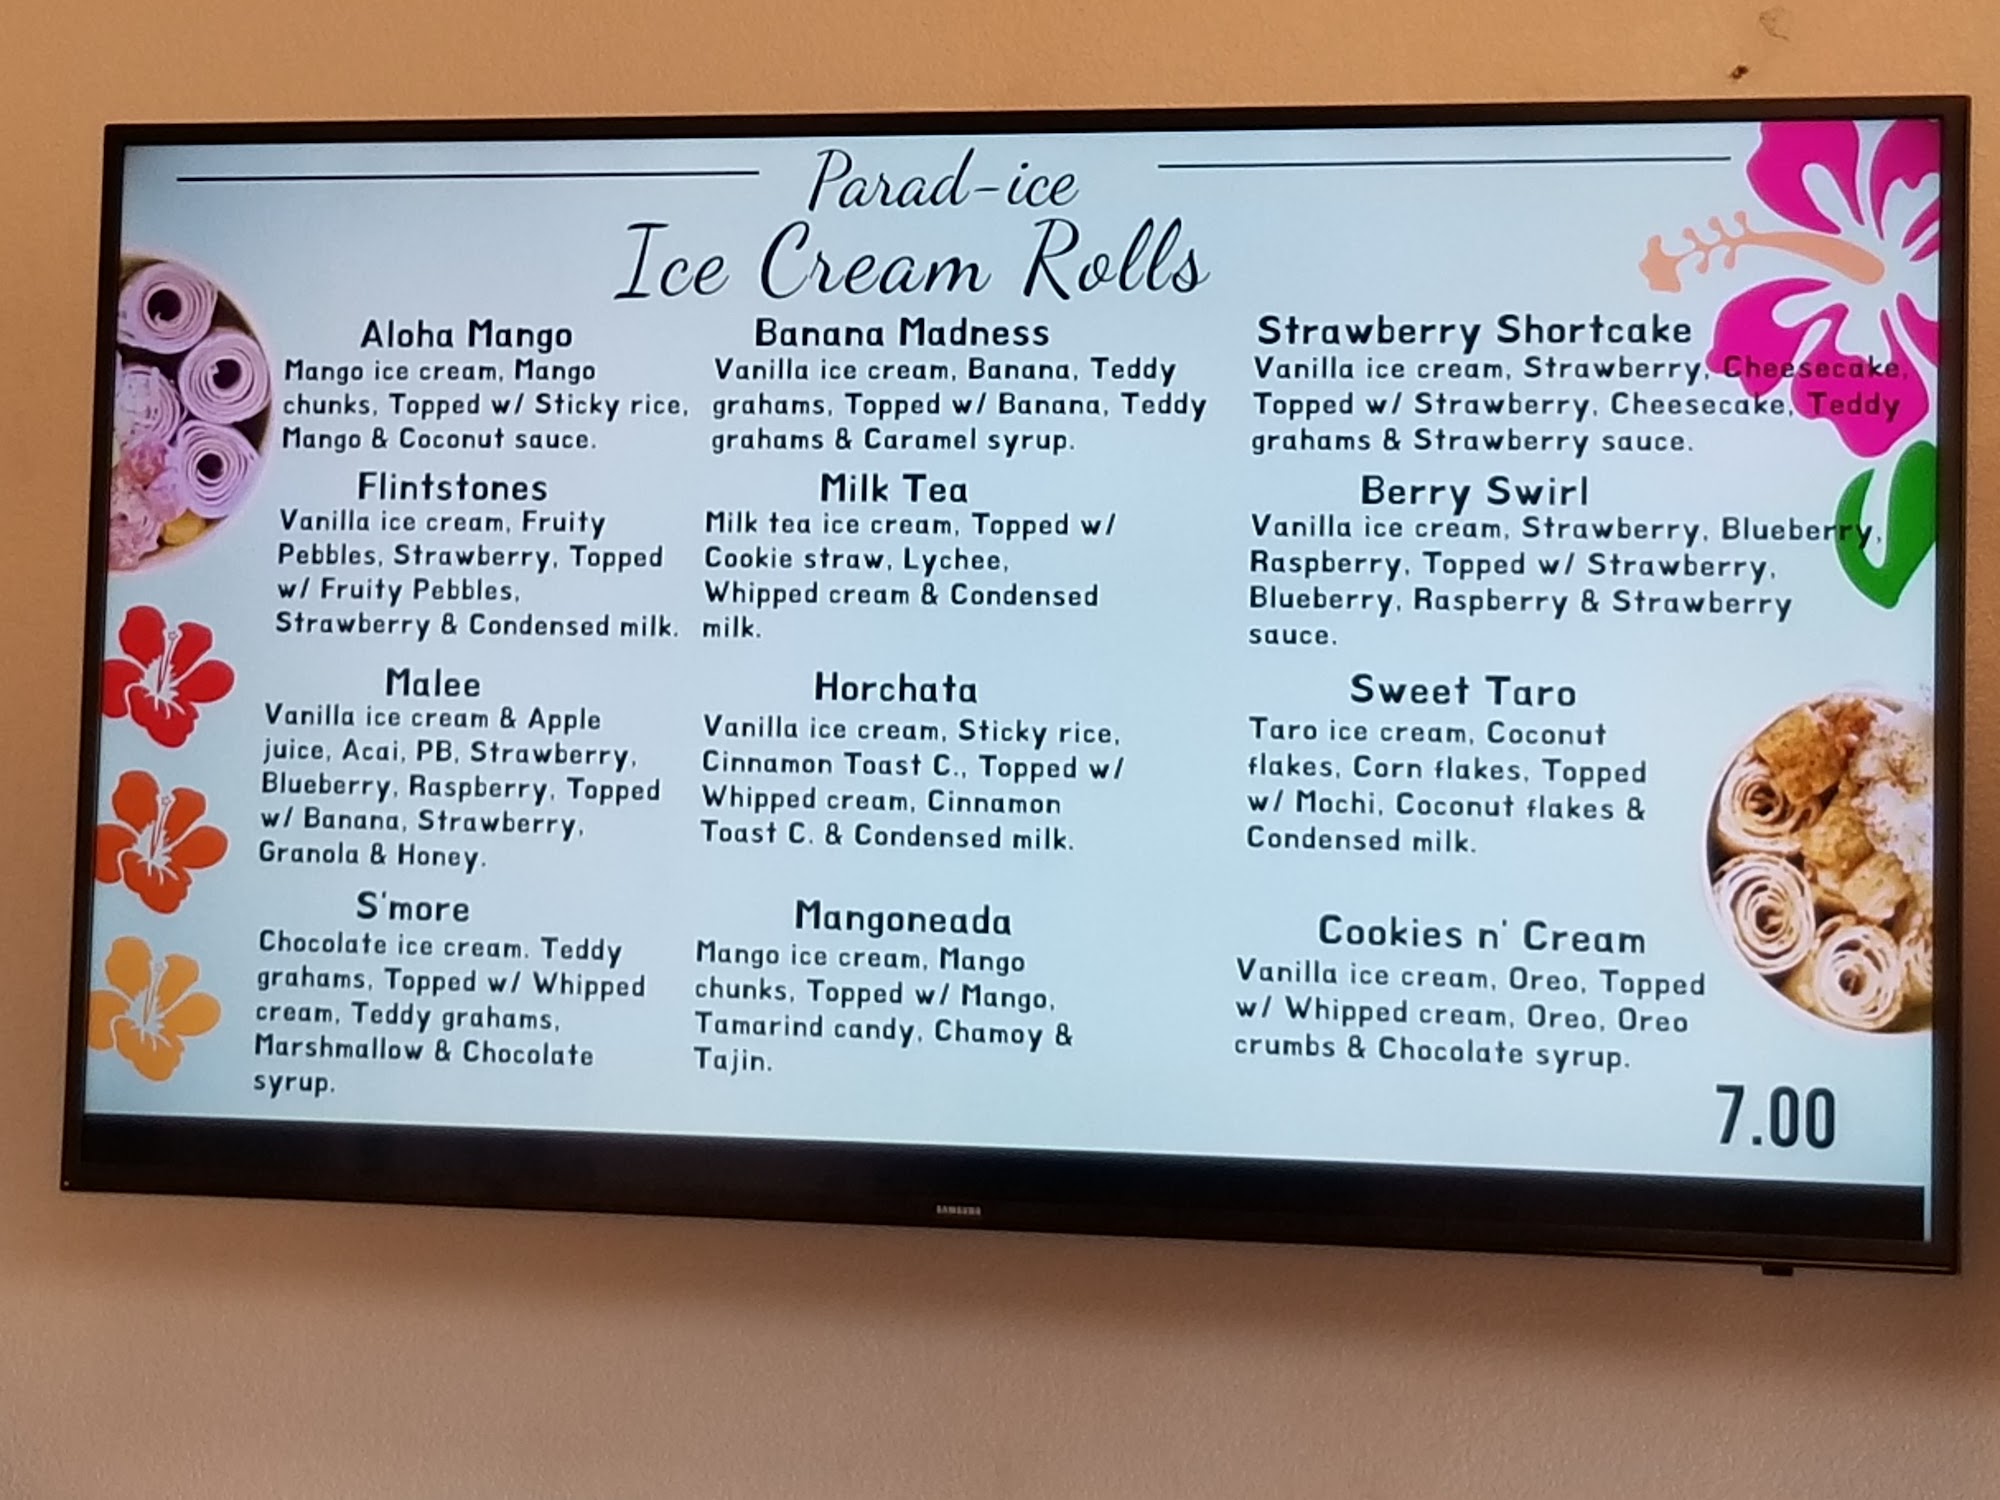 Parad-ice
Ice Cream Rolls
Aloha Mango
Mango ice cream, Mango
chunks, Topped w/ Sticky rice,
Mango & Coconut sauce.
Flintstones
Vanilla ice cream, Fruity
Pebbles, Strawberry, Topped
w/ Fruity Pebbles,
Strawberry & Condensed milk.
Malee
Vanilla ice cream & Apple
juice, Acai, PB, Strawberry,
Blueberry, Raspberry, Topped
w/ Banana, Strawberry,
Granola & Honey.
S'more
Chocolate ice cream. Teddy
grahams, Topped w/ Whipped
cream, Teddy grahams,
Marshmallow & Chocolate
syrup.
Banana Madness
Vanilla ice cream, Banana, Teddy
grahams, Topped w/ Banana, Teddy
grahams & Caramel syrup.
Milk Tea
Milk tea ice cream, Topped w/
Cookie straw, Lychee,
Whipped cream & Condensed
milk.
Horchata
Vanilla ice cream, Sticky rice,
Cinnamon Toast C., Topped w/
Whipped cream, Cinnamon
Toast C. & Condensed milk.
Mangoneada
Mango ice cream, Mango
chunks, Topped w/ Mango,
Tamarind candy, Chamoy &
Tajin.
Strawberry Shortcake
Vanilla ice cream, Strawberry, Cheesecake,
Topped w/ Strawberry, Cheesecake, Teddy
grahams & Strawberry sauce.
Berry Swirl
Vanilla ice cream, Strawberry, Blueberry,
Raspberry, Topped w/ Strawberry,
Blueberry, Raspberry & Strawberry
sauce.
Sweet Taro
Taro ice cream, Coconut
flakes, Corn flakes, Topped
w/ Mochi, Coconut flakes &
Condensed milk.
Cookies n' Cream
Vanilla ice cream, Oreo, Topped
w/ Whipped cream, Oreo, Oreo
crumbs & Chocolate syrup.
7.00
SAMSUNG